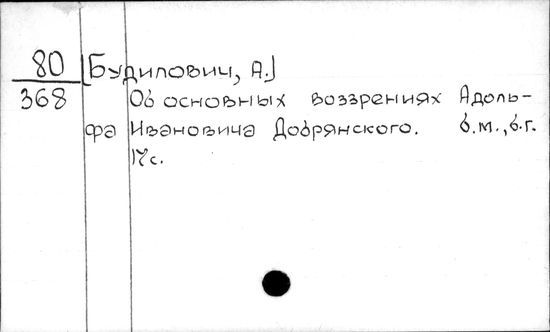 80 [Будилович, А.]
368 Об основных воззрениях Адоль-
фа Ивановича Добрянского. б.м., б.г.
17с.